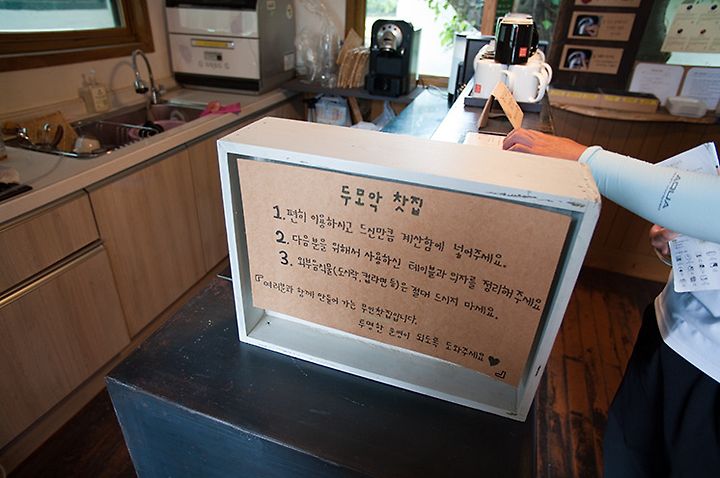 두모악 찻집
1. 편히 이용하시고 드신만큼 계산함에 넣어주세요.
2. 다음분을 위해서 사용하신 테이블과 의자를 정리해주세요
3. 외부음식물(도시락, 컵라면 등)은 절대 드시지 마세요.
『여러분과 함께 만들어 가는 무인찻집입니다.
투명한 운영이 되도록 도와주세요♥』
AQUA